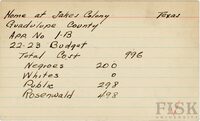 Home at Jakes Colony Texas
Guadulupe County
App No 1-B
22-23 Budget
Total Cost 996
Negroes 200
Whites 0
Public 298
Rosenwald 498
FISK
UNIVERSITY